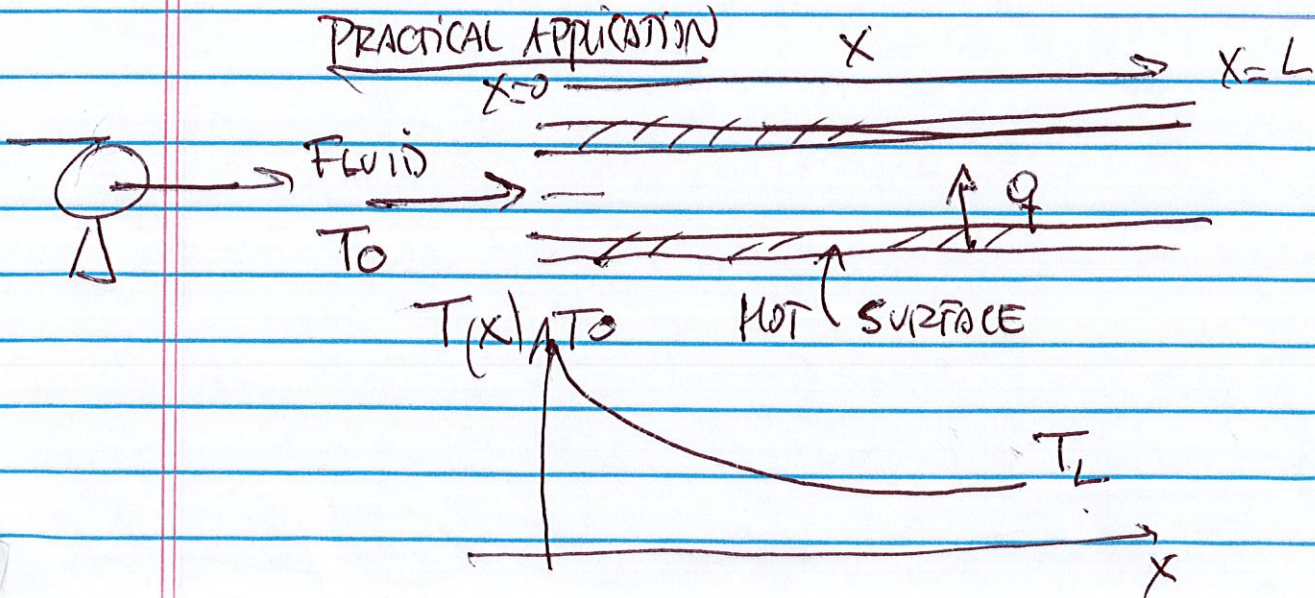 PRACTICAL APPLICATION
X
X=0
X=L
FLUID
q
T0
HOT SURFACE
T(X) T0
TL
X